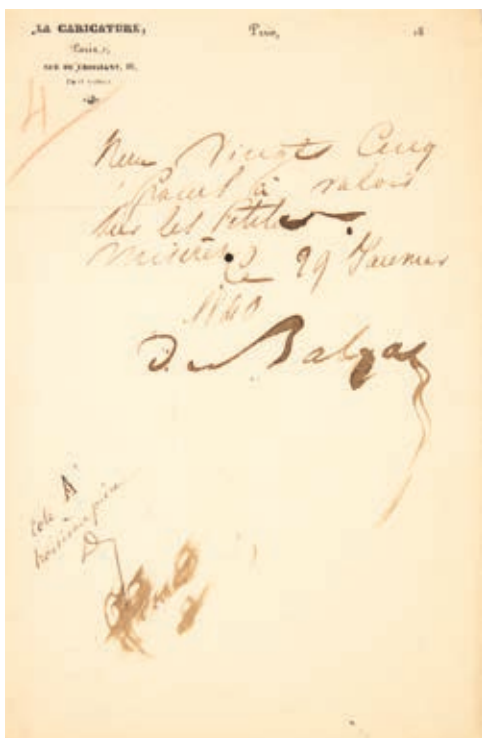 LA CARICATURE,
Paris, 18
RUE DU CROISSANT, 16,
4
Reçu Vingt Cinq
francs à valoir
sur les Petites
misères
Ce 29 Janvier
1840
De Balzac
cote A
troisième pièce